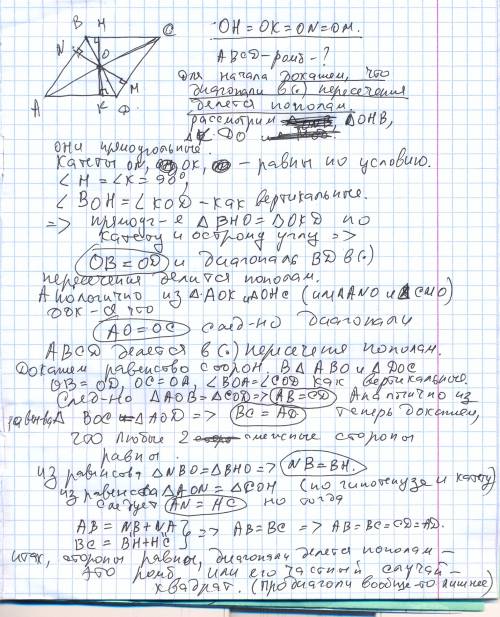 B H C
N O
A K D M
OH = OK = ON = OM.
ABCD – ромб – ?
Для начала докажем, что
диагонали в (·) пересечения
делятся пополам.
рассмотрим ΔOHB,
ΔK DO
они прямоугольные.
Катеты OH, OK, – равны по условию.
∠H = ∠K = 90°,
∠BOH = ∠KOD – как вертикальные.
=> прямоуг-е ΔBHO = ΔOKD по
катету и острому углу =>
OB = OD и диагональ BD в (·)
пересечения делится пополам.
Аналогично из ΔAOK и ΔOHC (или ΔANO и ΔCMO)
док-ся что
AO = OC след-но диагонали
ABCD делятся в (·) пересечения пополам.
Докажем равенство сторон. В ΔABO и ΔDOC
OB = OD, OC = OA, ∠BOA = ∠COD как вертикальные.
След-но ΔAOB = ΔCOD => AB = CD Аналогично из
рав-ва Δ BOC = ΔAOD => BC = AD Теперь докажем,
что любые 2 смежные стороны
равны.
из равенства ΔNBO = ΔBHO => NB = BH.
из равенства ΔAON = ΔCOH (по гипотенузе и катету)
следует AN = HC но тогда
AB = NB + NA } => AB = BC => AB = BC = CD = AD.
BC = BH + HC
итак, стороны равны, диагонали делятся пополам –
это ромб, или его частный случай –
квадрат. (Про диагонали вообще-то лишнее)